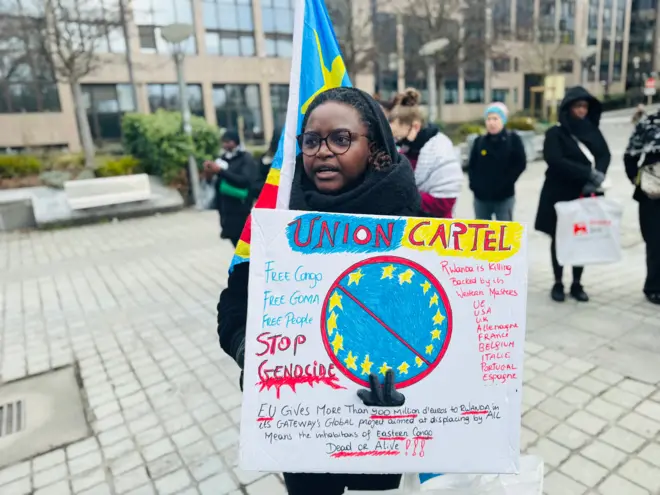 UNION CARTEL
FREE CONGO
FREE GOMA
FREE PEOPLE
STOP
GENOCIDE
RWANDA IS KILLING
BACKED by its
Western MASTERS
UE
USA
UK
Allemagne
FRANCE
BELGIUM
ITALIE
PORTUGAL
ESPAGNE
EU GIVES MORE THAN 900 MILLION d'EUROS to RWANDA in
ITS GATEWAYS GLOBAL PROJECT AIMED AT DISPLACING BY ALL
MEANS THE INHABITANS OF EASTERN CONGO
DEAD OR ALIVE !!!